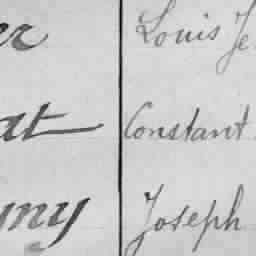 Louis Je
at Constant
my Joseph